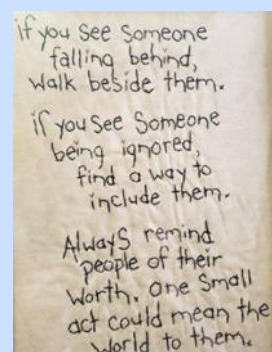 if you see Someone
falling behind,
walk beside them.
if you See Someone
being ignored,
find a way to
include them.
Always remind
people of their
worth. one Small
act could mean the
world to them.